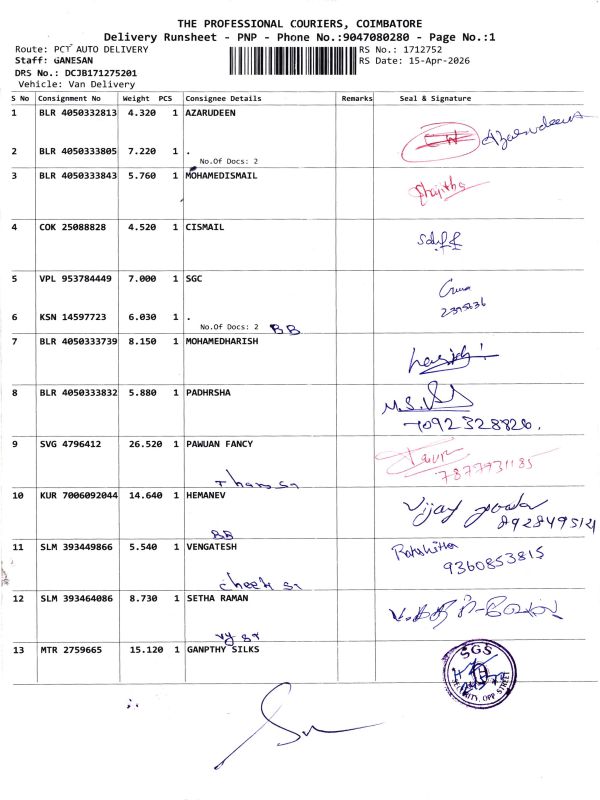 THE PROFESSIONAL COURIERS, COIMBATORE
Delivery Runsheet - PNP - Phone No.:9047080280 - Page No.:1
Route: PCT AUTO DELIVERY RS No.: 1712752
Staff: GANESAN RS Date: 15-Apr-2026
DRS No.: DCJB171275201
Vehicle: Van Delivery
S No Consignment No Weight PCS Consignee Details Remarks Seal & Signature
1 BLR 4050332813 4.320 1 AZARUDEEN Azarudeen
2 BLR 4050333805 7.220 1 .
No.Of Docs: 2
3 BLR 4050333843 5.760 1 MOHAMEDISMAIL
4 COK 25088828 4.520 1 CISMAIL
5 VPL 953784449 7.000 1 SGC
6 KSN 14597723 6.030 1 .
No.Of Docs: 2 BB
7 BLR 4050333739 8.150 1 MOHAMEDHARISH
8 BLR 4050333832 5.880 1 PADHRSHA
7092328826.
9 SVG 4796412 26.520 1 PAWUAN FANCY
7877731185
10 KUR 7006092044 14.640 1 HEMANEV Vijay
8928495121
BB
11 SLM 393449866 5.540 1 VENGATESH Rakshitha
9360853815
12 SLM 393464086 8.730 1 SETHA RAMAN
13 MTR 2759665 15.120 1 GANPTHY SILKS
SGS
SECURITY, OPP STREET